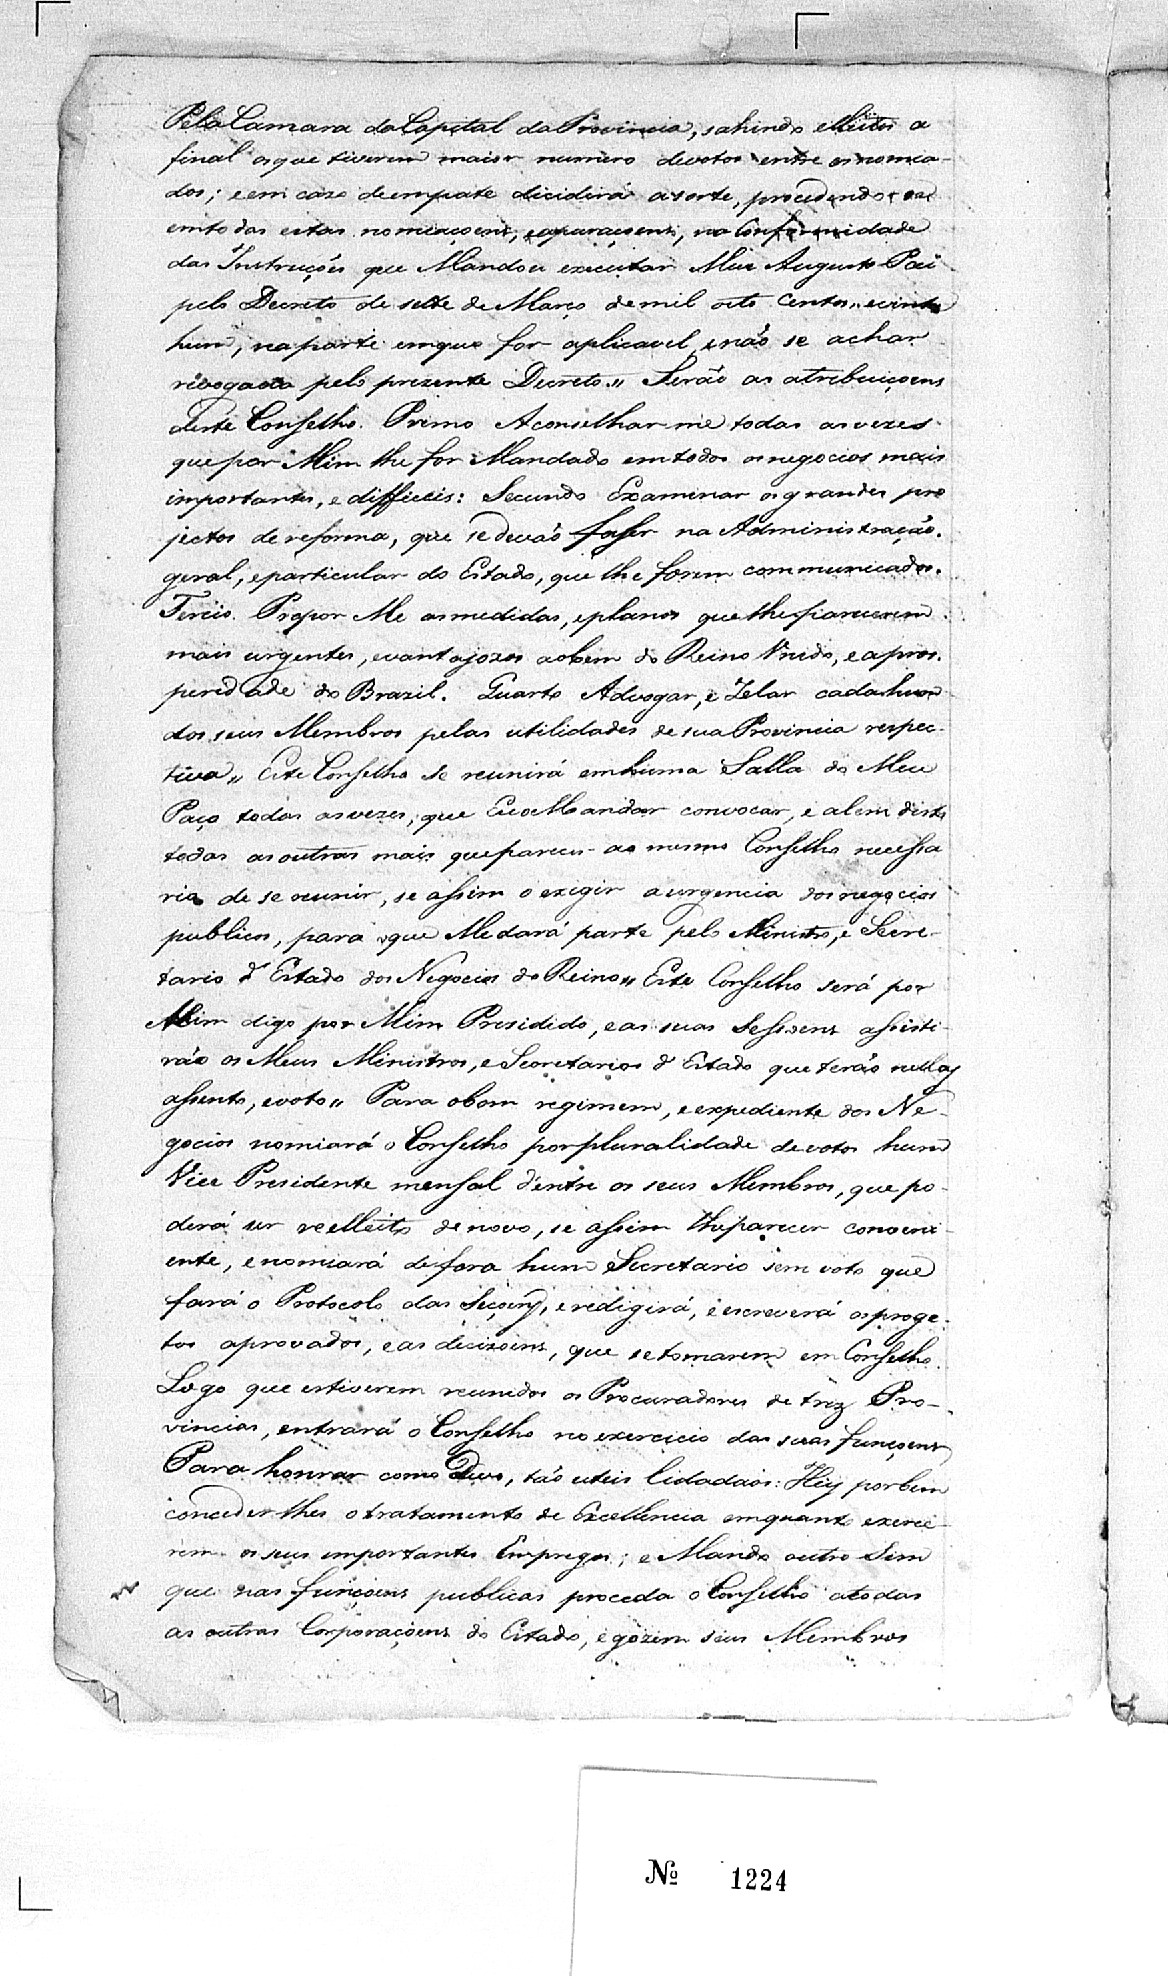 Pela Camara da Capital da Provincia, sahindo elleitos a
final os que tiverem maior numero de votos entre os nomea-
dos; e em caso de empate dicidirá a sorte, procedendo-se
em todas estas nomiaçoens, e apuraçoens, na Conformidade
das Instruções que Mandou executar Meu Augusto Pai
pelo Decreto de sette de Março de mil oito centos, e vinte
hum, na parte em que for aplicavel, e não se achar
revogada pelo prezente Decreto,, Serão as atribuiçoens
deste Conselho. Primo Aconselhar me todas as vezes
que por Mim lhe for Mandado em todos os negocios mais
importantes, e difficeis: Secundo Examinar os grandes pro
jectos de reforma, que se devão faser na Administração
geral, e particular do Estado, que lhe forem communicados.
Tercio. Propor Me as medidas, e planos que lhe parecerem
mais urgentes, e vantajozos ao bem do Reino Unido, e a pros-
peridade do Brazil. Quarto Advogar, e Zelar cada hum
dos seus Membros pelas utilidades de sua Provincia respec-
tiva,, Este Conselho se reunirá em huma Salla do Meu
Paço todas as vezes, que Eu o Mandar convocar, e alem disto
todas as outras mais que parecer ao mesmo Conselho necessa
rio de se reunir, se assim o exigir a urgencia dos negocios
publicos, para o que Me dará parte pelo Ministro, e Secre-
tario d' Estado dos Negocios do Reino,, Este Conselho será por
Mim digo por Mim Presidido, e as suas Sessoens assisti-
rão os Meus Ministros, e Secretarios d' Estado que terão nellas
assento, e voto,, Para o bom regimem, e expediente dos Ne-
gocios nomiará o Conselho por pluralidade de votos hum
Vice Presidente mensal d'entre os seus Membros, que po-
derá ser reelleito de novo, se assim lhe parecer conveni-
ente, e nomiará de fora hum Secretario sem voto que
fará o Protocolo das Seçoens, e redigirá, e escreverá os proge-
tos aprovados, e as decizoens, que se tomarem em Conselho.
Logo que estiverem reunidos os Procuradores de trez Pro-
vincias, entrará o Conselho no exercicio das suas funçoens
Para honrar como Devo, tão uteis Cidadãos: Hey por bem
conceder lhes o tratamento de Excellencia emquanto exerce-
rem os seus importantes Empregos; e Mando outro Sim
que nas funçoens publicas preceda o Conselho a todas
as outras Corporaçoens do Estado, e gozem seus Membros
Nº 1224